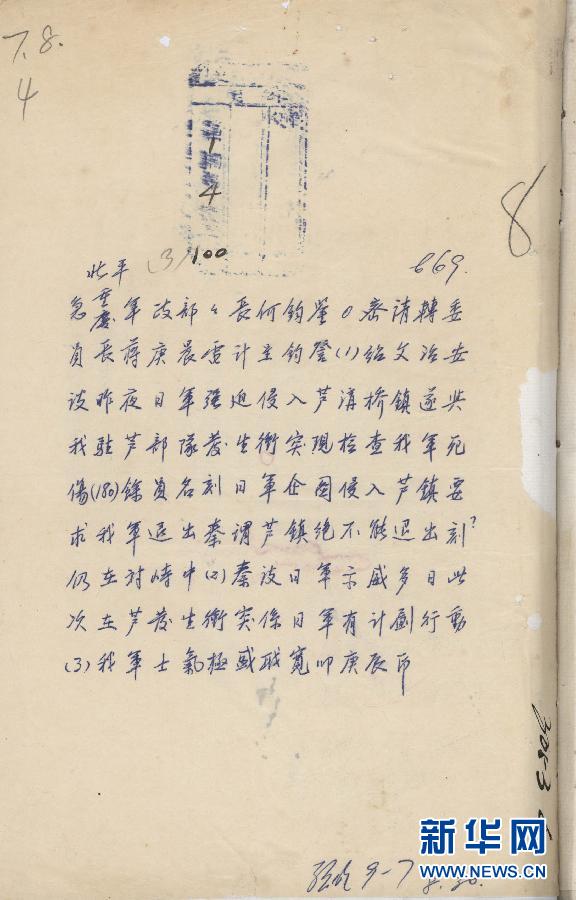 7.8.
4
1
4
8
北平 (3)/100 669.
急重慶軍政部々長何鈞鑒。密請轉委
員長蔣庚晨電計呈鈞詧(1)紹文冶安
談昨夜日軍强迫侵入芦溝桥鎮遂與
我駐芦部隊發生衝突現檢查我軍死
傷(180)餘員名刻日軍企圖侵入芦鎮要
求我軍退出秦謂芦鎮绝不能退出刻?
仍在对峙中(2)秦談日軍示威多日此
次在芦發生衝突係日軍有計劃行動
(3)我軍士氣極盛职寬叩庚辰印
9-7
8.30.
新华网
WWW.NEWS.CN